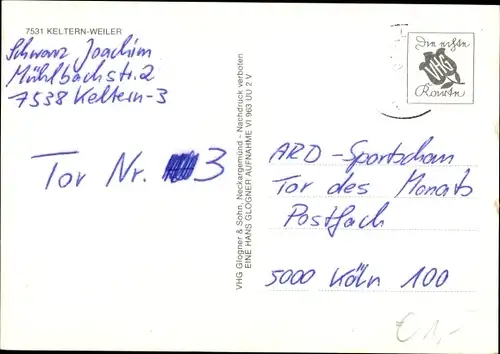 7531 KELTERN-WEILER
Schwarz Joachim
Mühlbachstr. 2
7538 Keltern-3
Tor Nr. 3
VHG Glogner & Sohn, Neckargemünd - Nachdruck verboten
EINE HANS GLOGNER AUFNAHME VI 963 UU 2 V
Die echte
VHG
Karte
ARD-Sportschau
Tor des Monats
Postfach
5000 Köln 100
€ 1,-